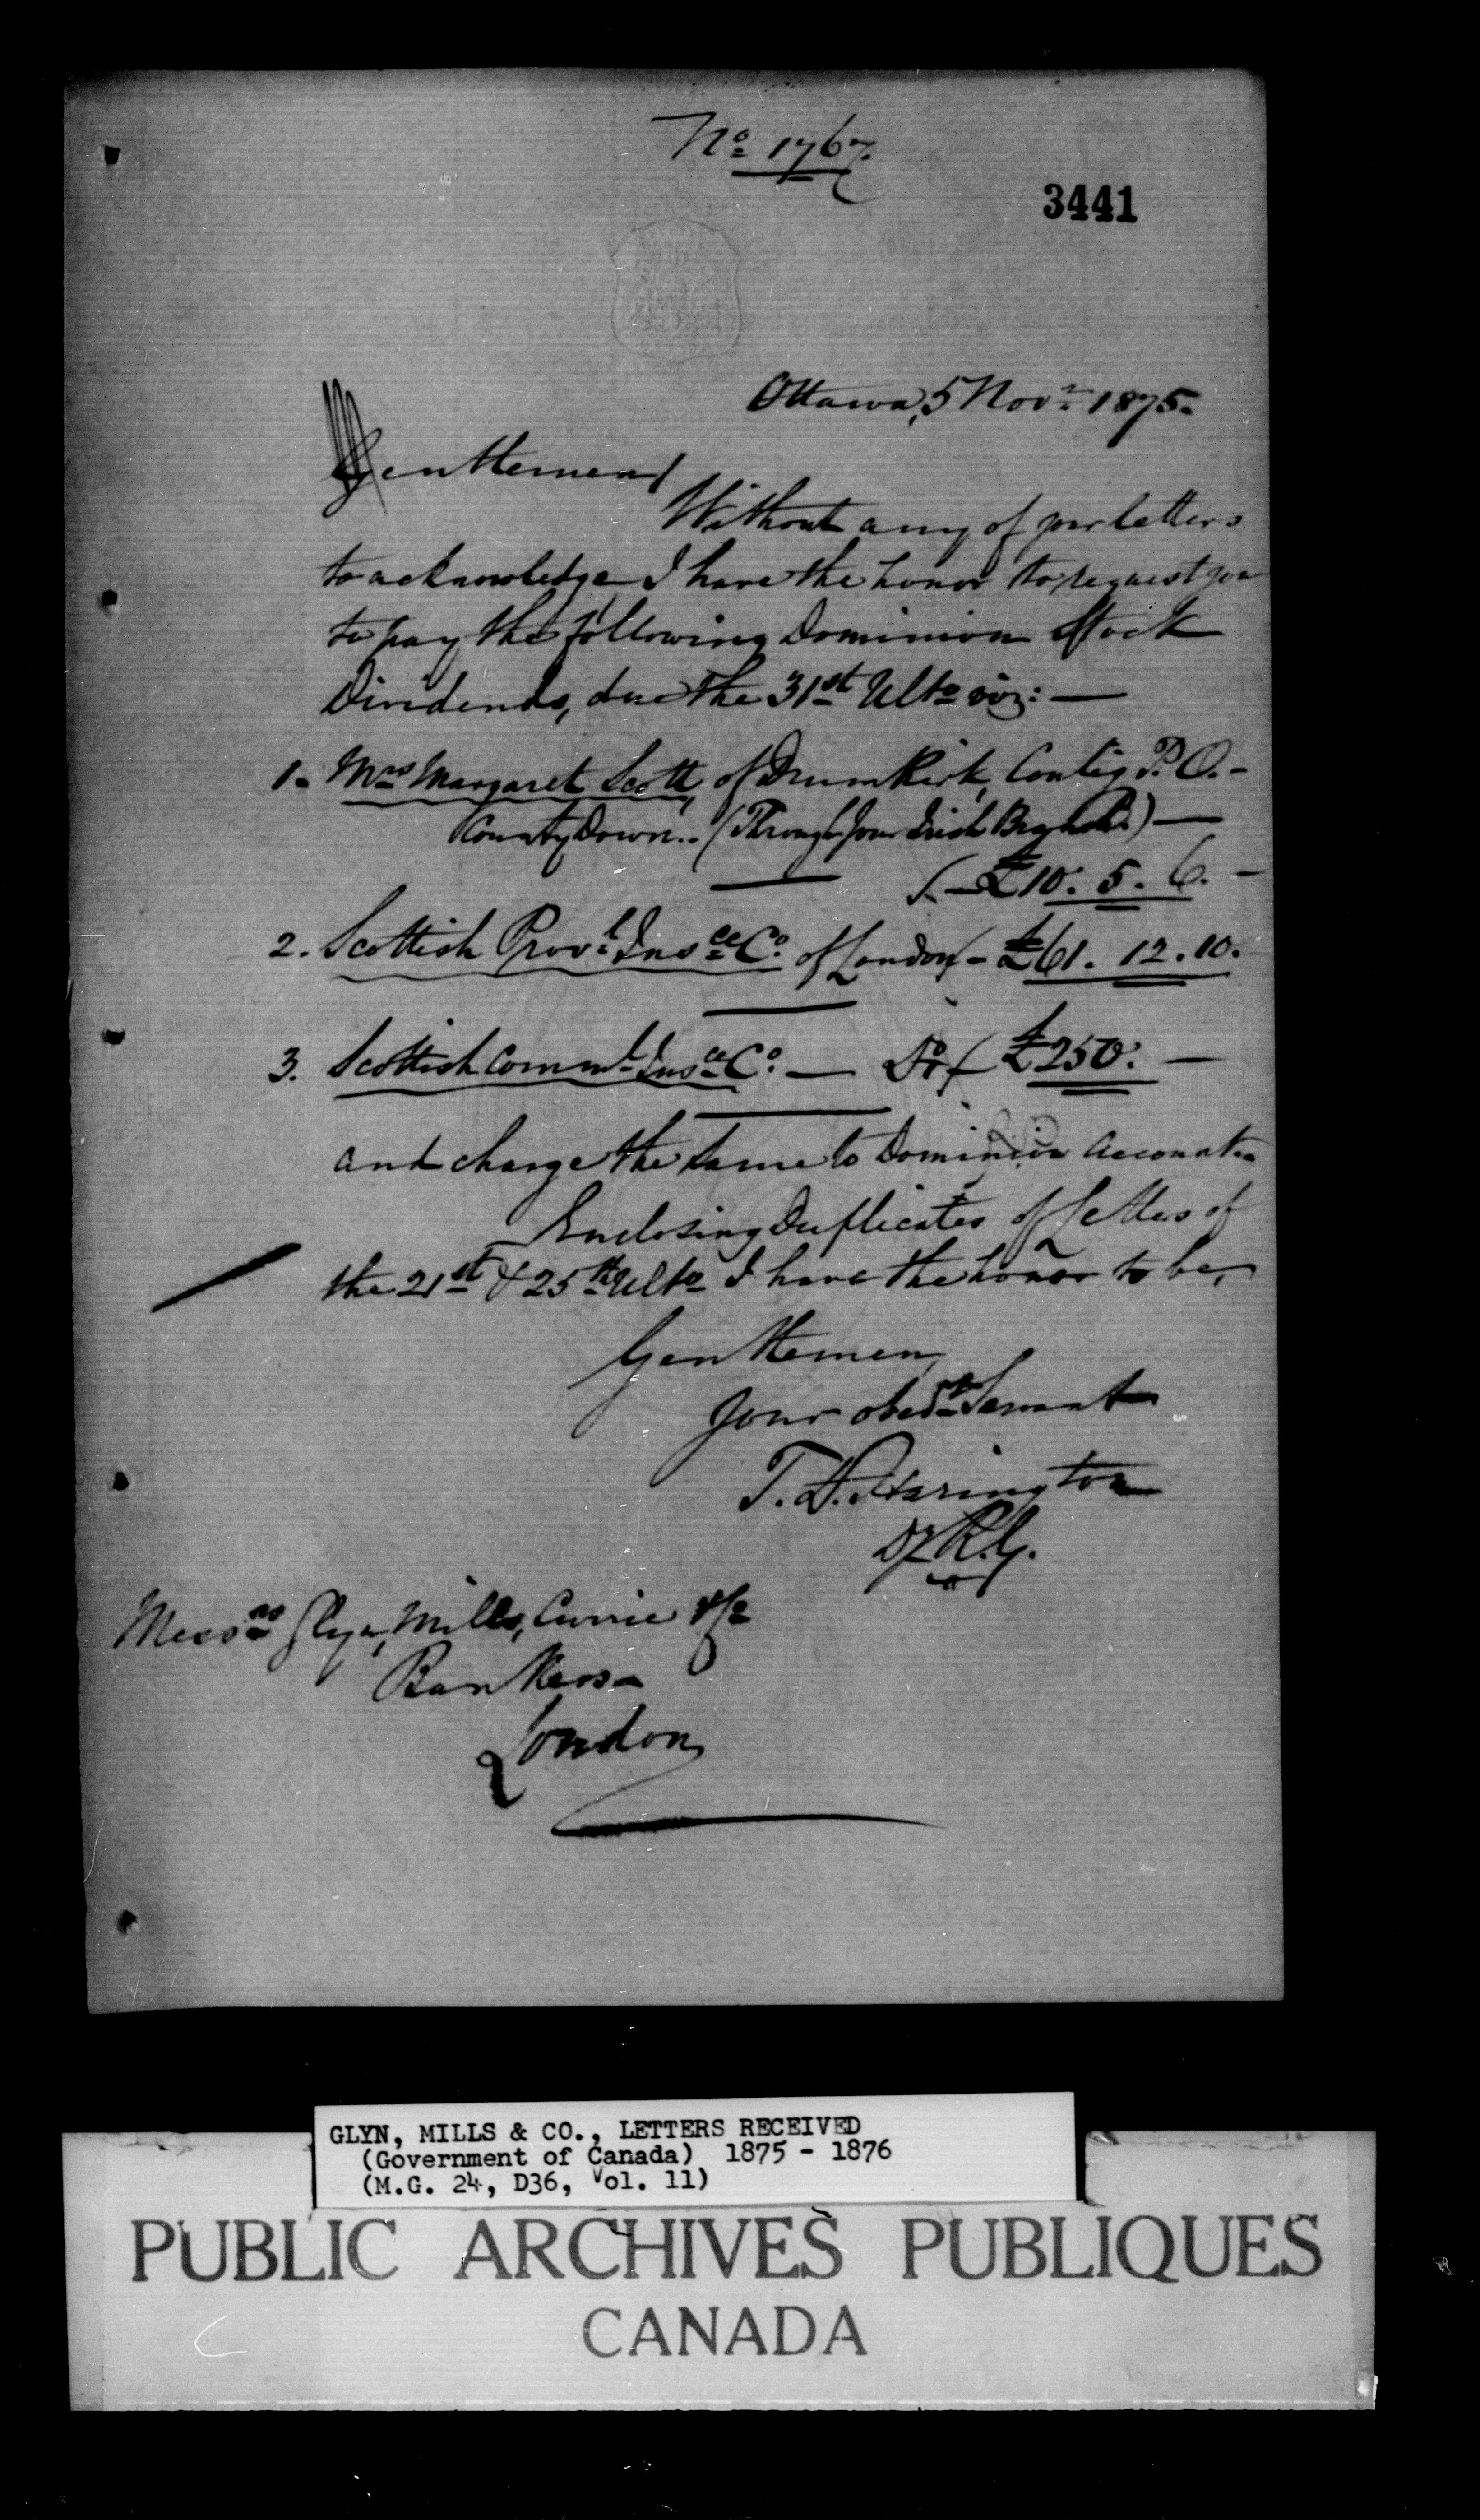 No 1767.
3441
Ottawa, 5 Novr 1875.
Gentlemen,
Without any of your letters
to acknowledge I have the honor to request you
to pay the following Dominion Stock
Dividends, due the 31st Ulto viz: —
1. Mrs Margaret Scott, of Drumkirk, Contig P.O. -
County Down. - (Through your Irish) —
£10. 5. 6. -
2. Scottish Provl Insce Co. of London - £61. 12. 10.
3. Scottish Comml Insce Co. — Do £250. —
and charge the same to Dominion Account. -
Enclosing Duplicates of Letters of
the 21st & 25th Ulto I have the honor to be,
Gentlemen,
Your obedt Servant
T. D. Harington
Dy R.G.
Messrs Glyn, Mills, Currie & Co
Bankers -
London
GLYN, MILLS & CO., LETTERS RECEIVED
(Government of Canada) 1875 - 1876
(M.G. 24, D36, Vol. 11)
PUBLIC ARCHIVES PUBLIQUES
CANADA